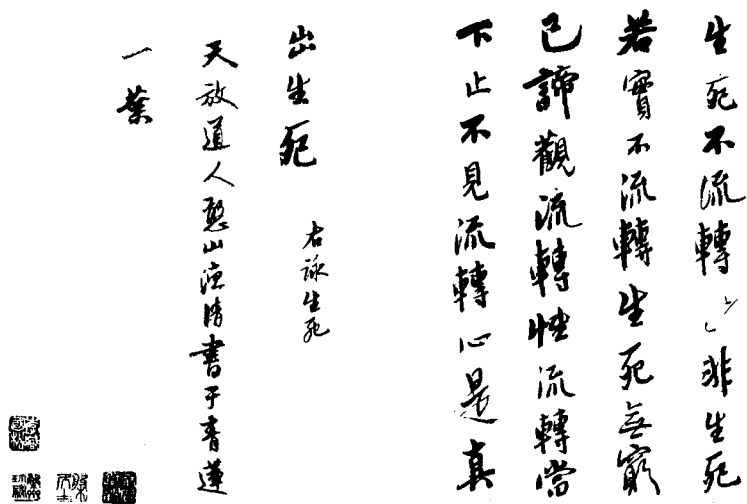 生死不流轉〻〻非生死
若實不流轉生死無窮
已諦觀流轉性流轉當
下止不見流轉心是真
出生死
右詠生死
天放道人憨山德清書于青蓮
一葉